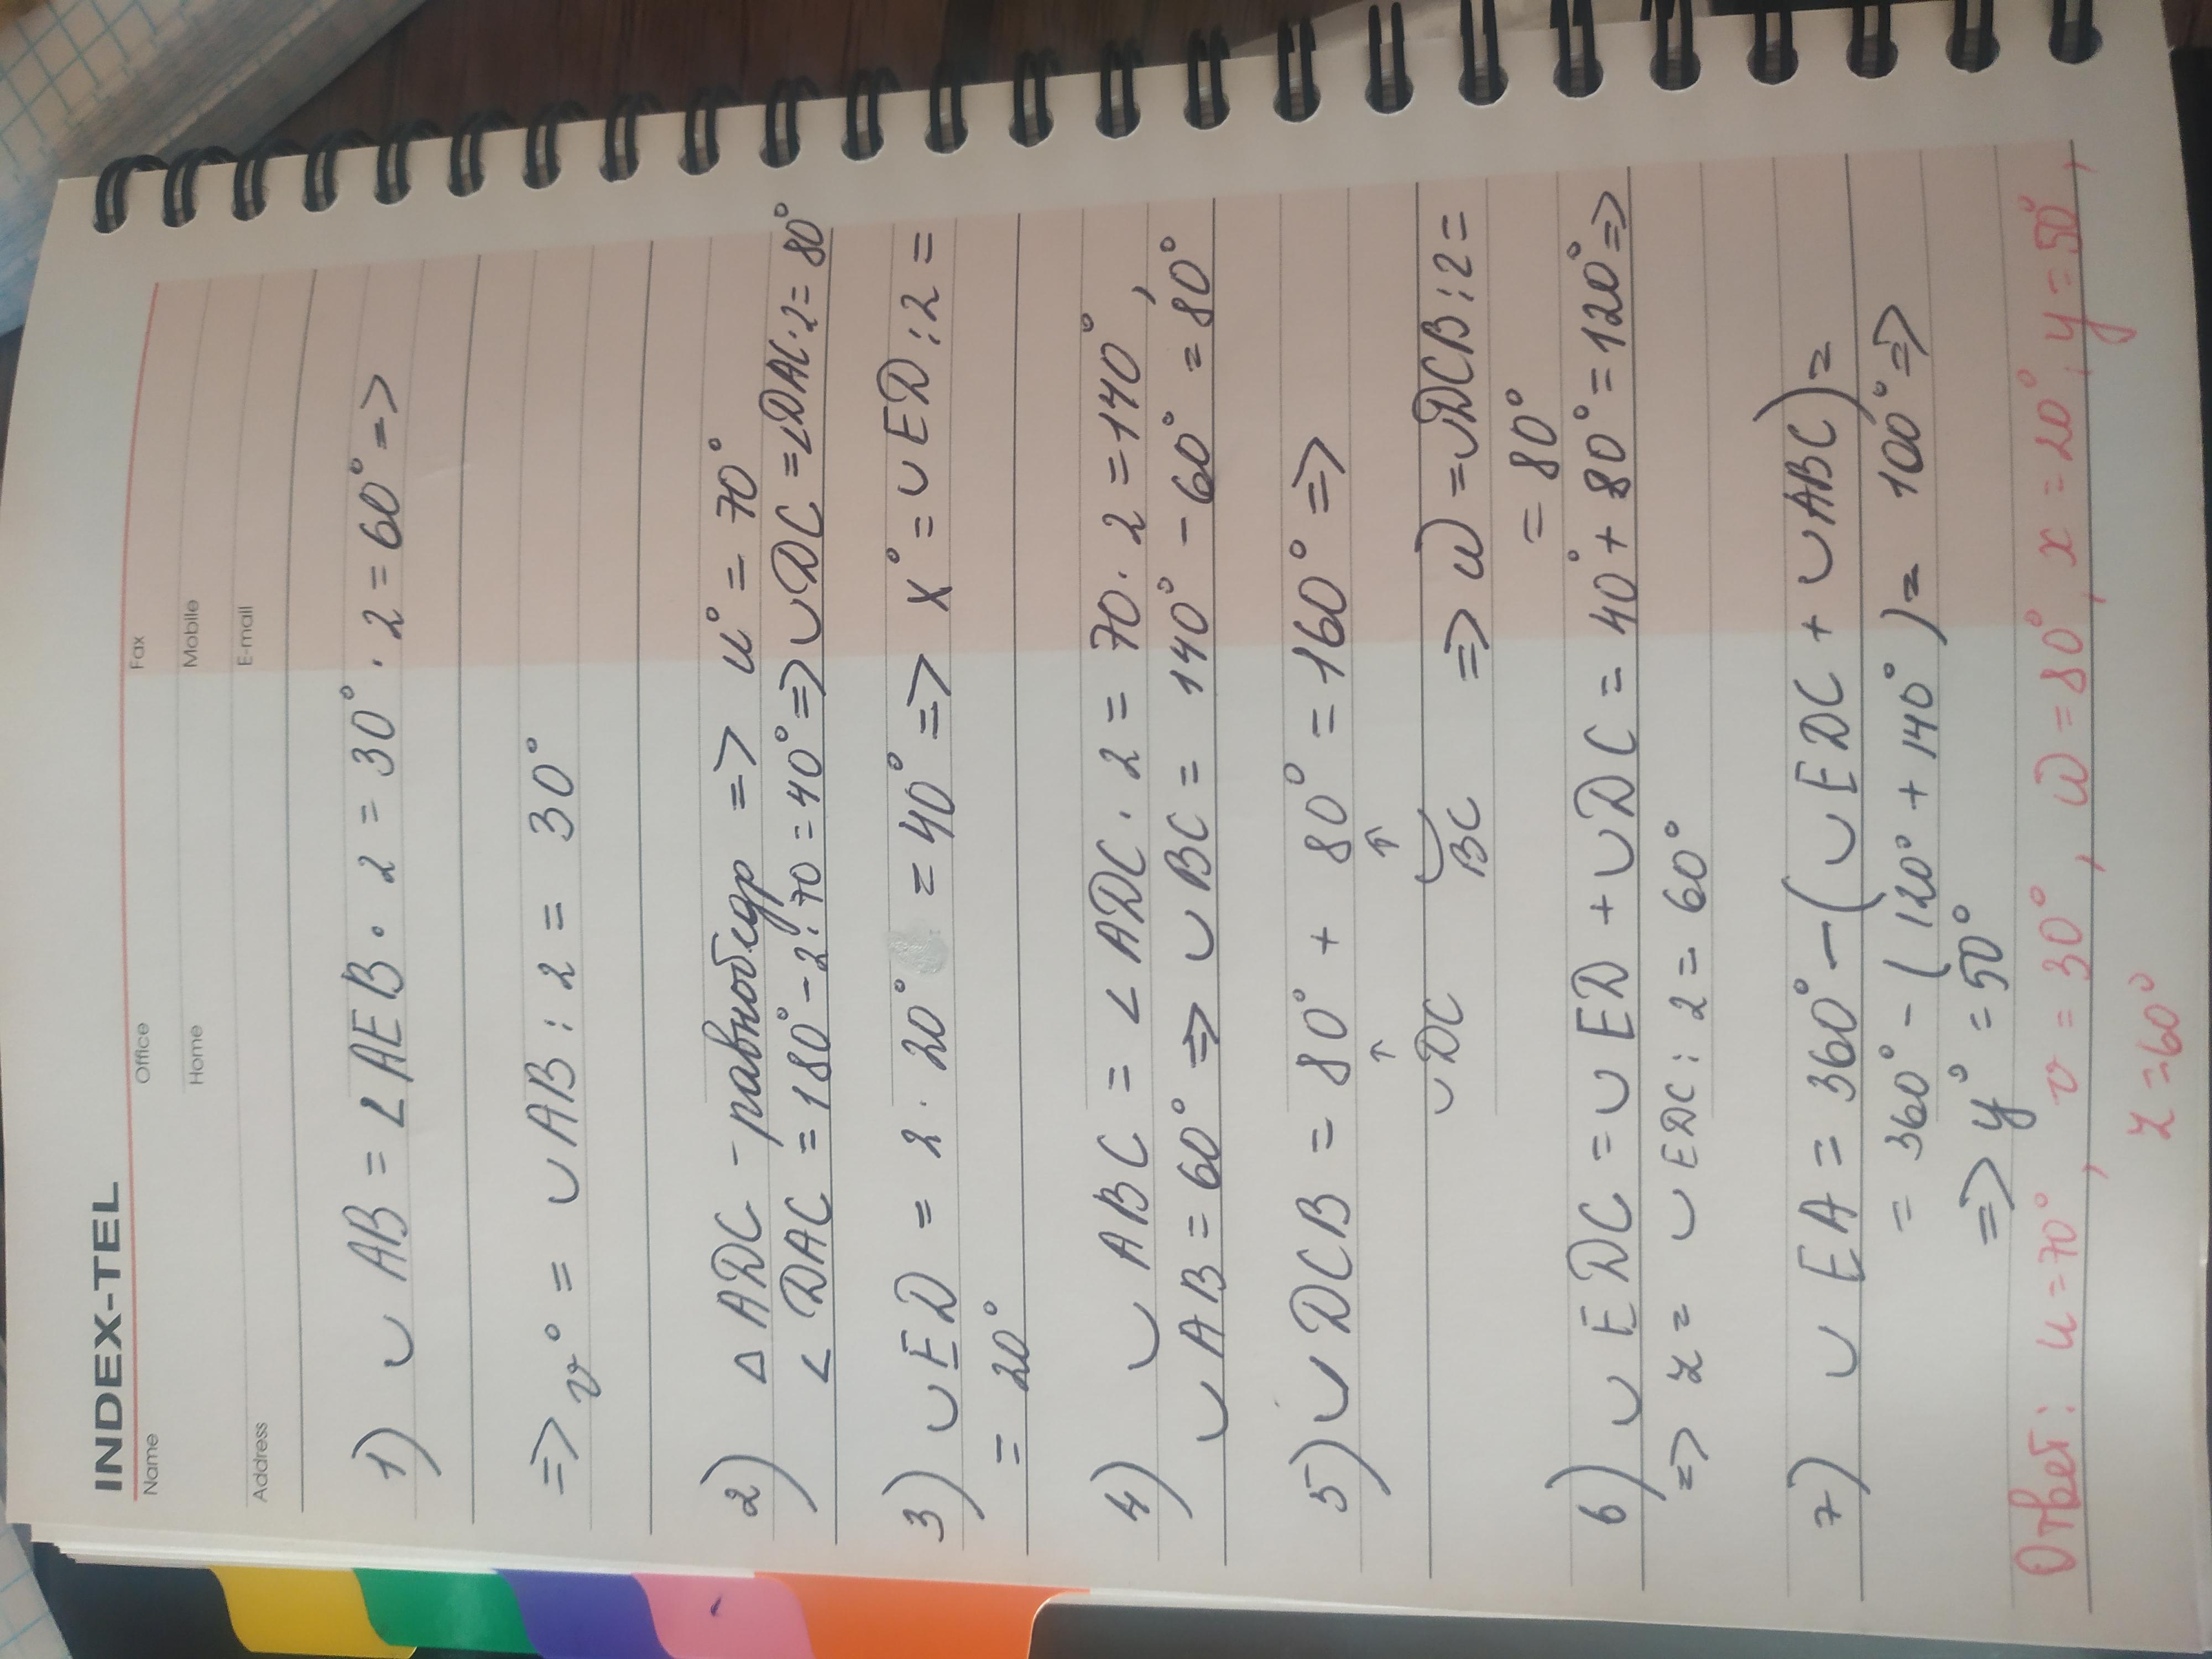 INDEX-TEL
Name Office Fax
Home Mobile
Address E-mail
1) ∪ AB = ∠ AEB · 2 = 30° · 2 = 60° =>
=> v° = ∪ AB : 2 = 30°
2) Δ ADC - равнобедр => u° = 70°
∠ DAC = 180° - 2 · 70 = 40° => ∪ DC = ∠DAC · 2 = 80°
3) ∪ ED = 2 · 20° = 40° => x° = ∪ ED : 2 =
= 20°
4) ∪ ABC = ∠ ADC · 2 = 70 · 2 = 140°,
∪ AB = 60° => ∪ BC = 140° - 60° = 80°
5) ∪ DCB = 80° + 80° = 160° =>
↑ ↑
∪ DC ∪ BC => w = ∪DCB : 2 =
= 80°
6) ∪ EDC = ∪ ED + ∪ DC = 40° + 80° = 120° =>
=> z = ∪ EDC : 2 = 60°
7) ∪ EA = 360° - (∪ EDC + ∪ ABC) =
= 360° - (120° + 140°) = 100° =>
=> y° = 50°
Ответ: u = 70°, v = 30°, w = 80°, x = 20°, y = 50°,
z = 60°